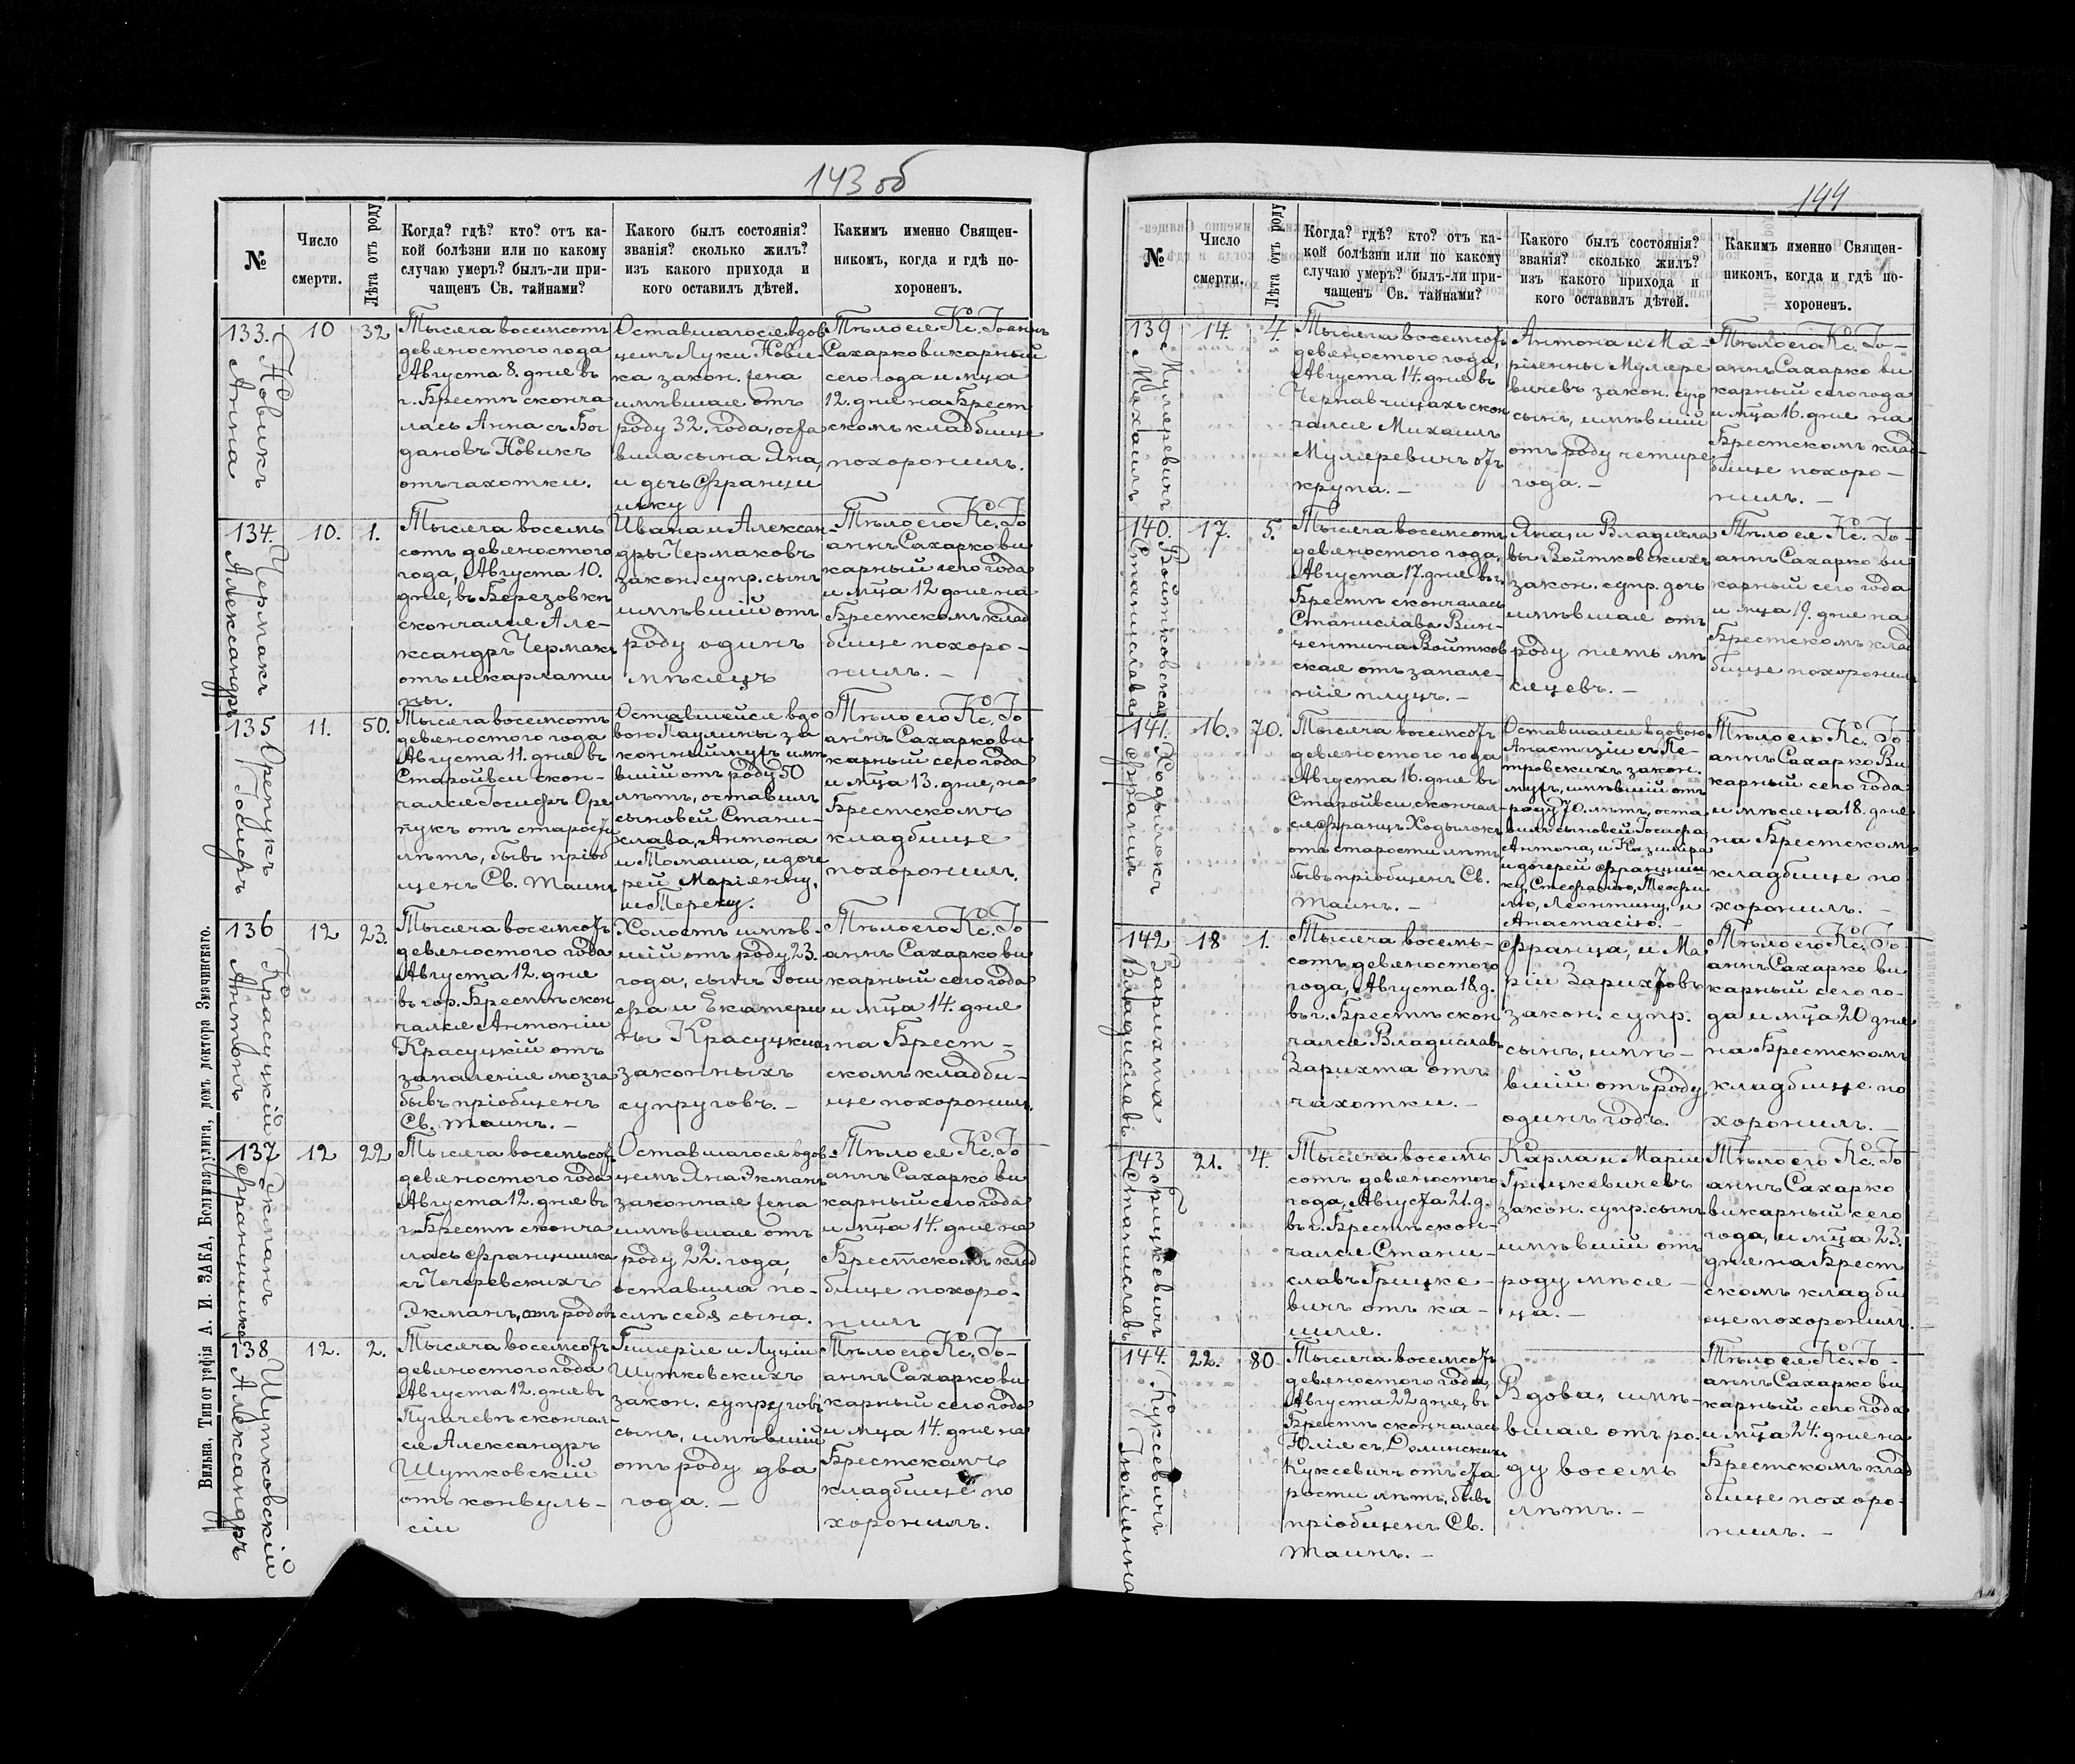 143 об
№
Число
смерти.
Лѣта отъ роду
Когда? гдѣ? кто? отъ ка-
кой болѣзни или по какому
случаю умеръ? былъ-ли при-
чащенъ Св. тайнами?
Какого былъ состоянія?
званія? сколько жилъ?
изъ какого прихода и
кого оставилъ дѣтей.
Какимъ именно Священ-
никомъ, когда и гдѣ по-
хороненъ.
133.
Новикъ
Анна
10
32
Тысяча восемсотъ
девяностого года
Августа 8. дня въ
г. Брестѣ сконча
лась Анна съ Бог
дановъ Новикъ
отъ чахотки.
Оставшагося вдов
цемъ Луки Нови-
ка закон. жена
имѣвшая отъ
роду 32. года, оста
вила сына Яна,
и дочь Францишку
Тѣло ея Кс. Іоаннъ
Сахарко викарный
сего года и мца
12. дня на Брест
скомъ кладбище
похоронилъ.
134.
Чермакъ
Александръ
10.
1.
Тысяча восемь
сотъ девяностого
года, Августа 10.
дня, въ Березовкѣ
скончался Але-
ксандръ Чермакъ
отъ шкарлати
ны.
Ивана и Алексан-
дры Чермаковъ
закон. супр. сынъ
имѣвшій отъ
роду одинъ
мѣсяцъ
Тѣло его Кс. Іо
аннъ Сахарко ви
карный сего года
и мца 12 дня на
Брестскомъ клад
бище похоро-
нилъ. -
135
Орепукъ
Іосифъ
11.
50.
Тысяча восемсотъ
девяностого года
Августа 11. дня въ
Старойвси скон-
чался Іосифъ Оре
пукъ отъ старости
лѣтъ, бывъ пріоб
щенъ Св. Таинъ
Оставшейся вдо
вою Паулины за
конный мужъ имѣ
вшій отъ роду 50
лѣтъ, оставилъ
сыновей Стани-
слава, Антона
и Томаша, и доче
рей Маріенну,
и Терезу.
Тѣло его Кс. Іо
аннъ Сахарко ви
карный сего года
и мца 13. дня, на
Брестскомъ
кладбище
похоронилъ.
136
Красуцкій
Антонъ
12
23.
Тысяча восемсотъ
девяностого года
Августа 12. дня
въ гор. Брестѣ скон
чался Антоній
Красуцкій отъ
запаленія мозга
бывъ пріобщенъ
Св. таинъ. -
Холостъ имѣв-
шій отъ роду 23.
года, сынъ Іоси
фа и Екатери
ны Красуцкихъ
законныхъ
супруговъ. -
Тѣло его Кс. Іо
аннъ Сахарко ви
карный сего года
и мца 14. дня
на Брест-
скомъ кладби-
ще похоронилъ.
137
Экманъ
Францишка
12
22
Тысяча восемьсотъ
девяностого года
Августа 12. дня въ
г. Брестѣ сконча
лась Францишка
съ Чечеревскихъ
Экманъ, отъ родовъ
Оставшагося вдов
цемъ Яна Экманъ
законная жена
имѣвшая отъ
роду 22. года,
оставила по-
слѣ себя сына.
Тѣло ея Кс. Іо
аннъ Сахарко ви
карный сего года
и мца 14. дня на
Брестскомъ клад
бище похоро-
нилъ
138
Шутковскій
Александръ
12.
2.
Тысяча восемсотъ
девяностого года
Августа 12. дня въ
Пугачевѣ скончал-
ся Александръ
Шутковскій
отъ конвуль-
сіи
Гиперія и Луціи
Шутковскихъ
закон. супруговъ
сынъ, имѣвшій
отъ роду два
года. -
Тѣло его Кс. Іо-
аннъ Сахарко ви
карный сего года
и мца 14. дня на
Брестскомъ
кладбище по
хоронилъ.
Вильна, Типографія А. И. ЗАКА, Большая улица, домъ доктора Значинскаго.
144
№
Число
смерти.
Лѣта отъ роду
Когда? гдѣ? кто? отъ ка-
кой болѣзни или по какому
случаю умеръ? былъ-ли при-
чащенъ Св. тайнами?
Какого былъ состоянія?
званія? сколько жилъ?
изъ какого прихода и
кого оставилъ дѣтей.
Какимъ именно Священ-
никомъ, когда и гдѣ по-
хороненъ.
139
Муляревичъ
Михаилъ
14.
4.
Тысяча восемсотъ
девяностого года,
Августа 14. дня въ
Чернавчицахъ скон
чался Михаилъ
Муляревичъ отъ
крупа. -
Антона и Ма-
ріенны Муляре
вичевъ закон. супр
сынъ, имѣвшій
отъ роду четире
года. -
Тѣло его Кс. Іо-
аннъ Сахарко ви
карный сего года
и мца 16. дня на
Брестскомъ клад-
бище похоро-
нилъ. -
140.
Войтковская
Станислава
17.
5.
Тысяча восемсотъ
девяностого года,
Августа 17. дня въ г.
Брестѣ скончалась
Станислава Вин-
центина Войтков
ская отъ запале-
нія плуцъ. -
Яна и Владисла
вы Войтковскихъ
закон. супр. дочь
имѣвшая отъ
роду пять мѣ
сяцевъ. -
Тѣло ея Кс. Іо-
аннъ Сахарко ви
карный сего года
и мца 19. дня на
Брестскомъ клад
бище похоронилъ
141.
Ходылокъ
Францъ
16.
70.
Тысяча восемсотъ
девяностого года
Августа 16. дня въ
Старойвси скончал-
ся Францъ Ходылокъ
отъ старости лѣтъ
бывъ пріобщенъ Св.
Таинъ. -
Оставшаяся вдовою
Анастазіи съ Пе-
тровскихъ закон.
мужъ, имѣвшій отъ
роду 70. лѣтъ, оста
вилъ сыновей Іосифа
Антона, и Казимира
и дочерей Францишку, Стефанію, Теофи
лю, Леонтину, и
Анастасію. -
Тѣло его Кс. Іо
аннъ Сахарко Ви
карный сего года
и мѣсяца 18. дня
на Брестскомъ
кладбище по
хоронилъ. -
142
Зарихта
Владиславъ
18
1.
Тысяча восемь-
сотъ девяностого
года, Августа 18. д.
въ г. Брестѣ скон
чался Владиславъ
Зарихта отъ
чахотки. -
Франца, и Ма
ріи Зарихтовъ
закон. супр.
сынъ, имѣ-
вшій отъ роду
одинъ годъ.
Тѣло его Кс. Іо-
аннъ Сахарко ви
карный сего го-
да и мца 20 дня
на Брестскомъ
кладбище по
хоронилъ. -
143
Грицкевичъ
Станиславъ
21.
4.
Тысяча восемь
сотъ девяностого
года, Августа 21. д.
въ г. Брестѣ скон-
чался Стани-
славъ Грицке-
вичъ отъ ка-
шля.
Карла и Маріи
Грицкевичевъ
закон. супр. сынъ
имѣвшій отъ
роду мѣся-
ца. -
Тѣло его Кс. Іо
аннъ Сахарко
викарный сего
года, и мца 23.
дня на Брест
скомъ кладби
ще похоронилъ.
144.
Куксевичъ
Юліянна
22.
80
Тысяча восемсотъ
девяностого года,
Августа 22 дня, въ
Брестѣ скончалась
Юлія съ Долинскихъ
Куксевичъ отъ ста
рости лѣтъ, бывъ
пріобщенъ Св.
Таинъ. -
Вдова, имѣ-
вшая отъ ро-
ду восемь
лѣтъ. -
Тѣло ея Кс. Іо-
аннъ Сахарко ви
карный сего года
и мца 24. дня на
Брестскомъ клад
бище похоро-
нилъ. -